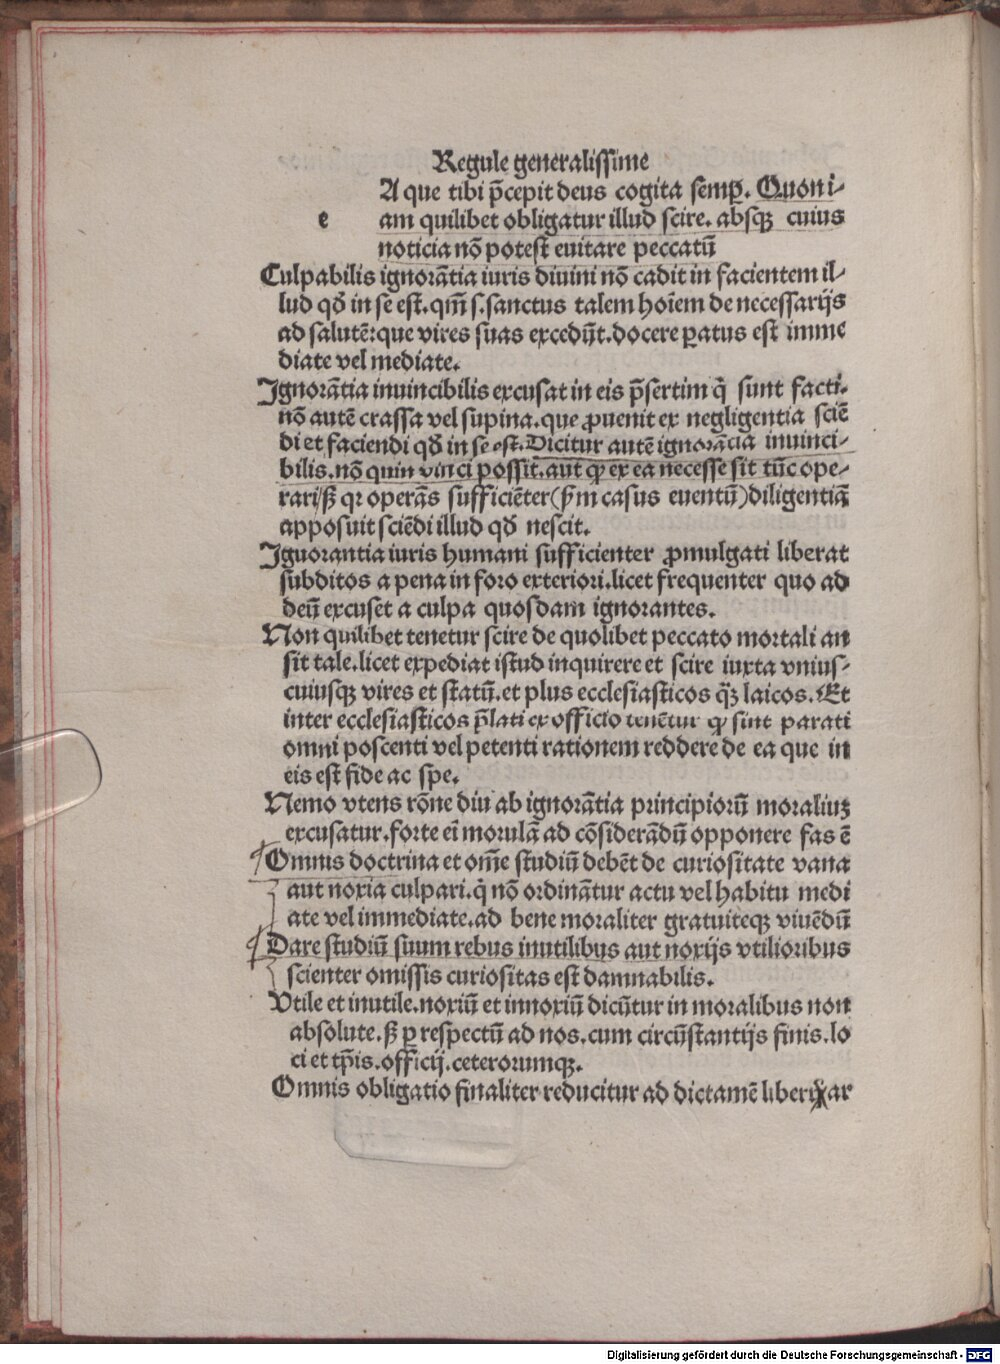 Regule generalissime
A que tibi p̄cepit deus cogita semꝑ. Quoni-
e am quilibet obligatur illud scire. absqꝫ cuius
noticia nō potest euitare peccatū
Culpabilis ignorātia iuris diuini nō cadit in facientem il-
lud qđ in se est. qm̄ s. sanctus talem hoīem de necessarijs
ad salutē: que vires suas excedūt. docere ꝑatus est imme
diate vel mediate.
Ignorātia inuincibilis excusat in eis p̄sertim q̄ sunt facti.
nō autē crassa vel supina. que ꝓuenit ex negligentia sciē
di et faciendi qđ in se est. Dicitur autē ignorācia inuinci-
bilis. nō quin vinci possit. aut ꝙ ex ea necesse sit tūc ope-
rari/ß qꝛ operās sufficiēter (p̄m casus euentū) diligentiā
apposuit sciēdi illud qđ nescit.
Iguorantia iuris humani sufficienter ꝓmulgati liberat
subditos a pena in foro exteriori. licet frequenter quo ad
deū excuset a culpa quosdam ignorantes.
Non quilibet tenetur scire de quolibet peccato mortali an
sit tale. licet expediat istud inquirere et scire iuxta vnius-
cuiusqꝫ vires et statū. et plus ecclesiasticos q̄ꝫ laicos. Et
inter ecclesiasticos p̄lati ex officio tenētur ꝙ sint parati
omni poscenti vel petenti rationem reddere de ea que in
eis est fide ac spe.
Nemo vtens rōne diu ab ignorātia principiorū moraliuꝫ
excusatur. forte eī morulā ad cōsiderādū opponere fas ē
Omnis doctrina et om̄e studiū debēt de curiositate vana
aut noxia culpari. q̄ nō ordinātur actu vel habitu medi
ate vel immediate. ad bene moraliter gratuiteqꝫ viuēdū
Dare studiū suum rebus inutilibus aut noxijs vtilioribus
scienter omissis curiositas est damnabilis.
Vtile et inutile. noxiū et innoxiū dicūtur in moralibus non
absolute. ß ꝑ respectū ad nos. cum circūstantijs finis. lo
ci et tp̄is. officij. ceterorumqꝫ.
Omnis obligatio finaliter reducitur ad dictamē liberi ar
Digitalisierung gefördert durch die Deutsche Forschungsgemeinschaft - DFG